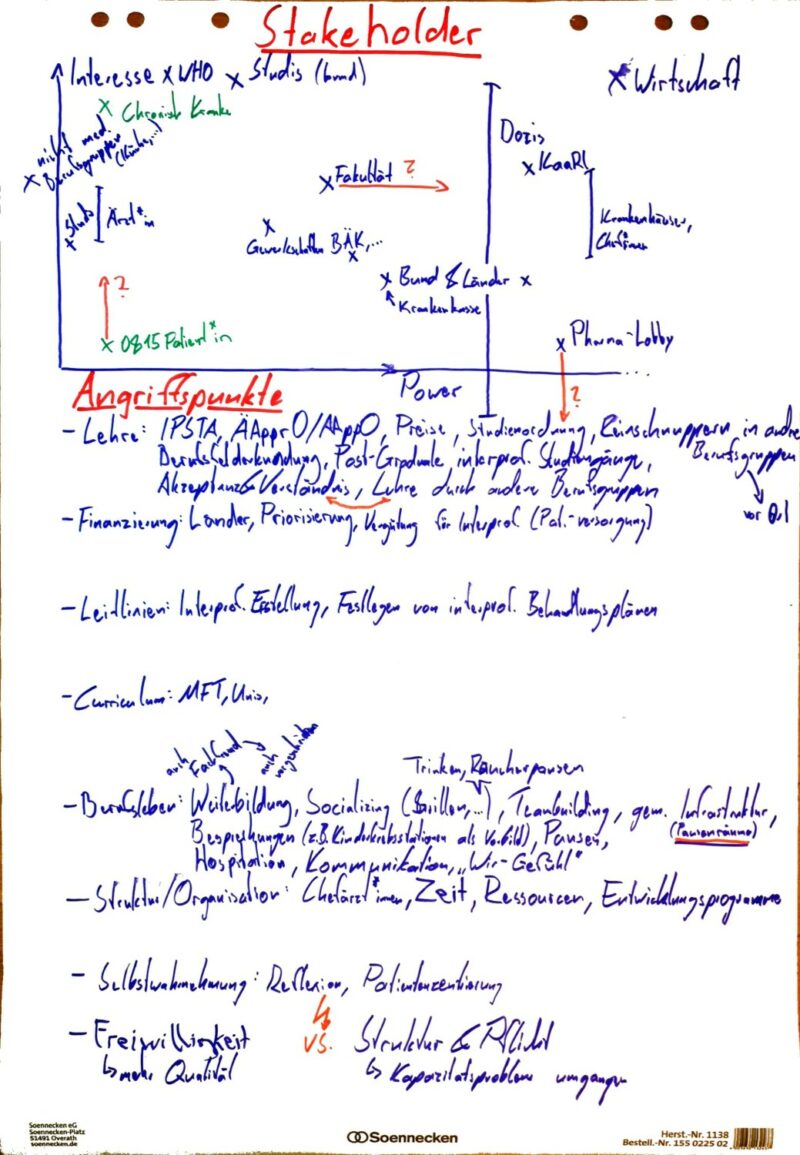 Stakeholder
Interesse x WHO x Studis (bund) x Wirtschaft
x Chronisch Kranke
x nicht med. Berufsgruppen
Dozis
x KaaRL
x Fakultät ?
x Studis Ärzt*in
Krankenhäuser,
Chef*innen
x
Gewerkschaften BÄK,...
x
x Bund & Länder x
Krankenkasse
?
x 0815 Patient*in
x Pharma-Lobby
?
Power ...
Angriffspunkte
- Lehre: IPSTA, ÄApprO/AAppO, Preise, Studienordnung, Reinschnuppern in andre
Berufsfelderkundung, Post-Graduale interprof. Studiengänge, Berufsgruppen
Akzeptanz & Verständnis, Lehre durch andere Berufsgruppen
vor Ort
- Finanzierung: Länder, Priorisierung, Vergütung für Interprof. (Pat.-versorgung)
- Leitlinien: Interprof. Erstellung, Festlegen von interprof. Behandlungsplänen
- Curriculum: MFT, Unis,
auch Fachfremd auch vorgeschrieben
Trinken, Raucherpausen
- Berufsleben: Weiterbildung, Socializing (Grillen,...), Teambuilding, gem. Infrastruktur,
Besprechungen (z.B. Kinderkrebsstationen als Vorbild), Pausen, (Pausenräume)
Hospitation, Kommunikation, „Wir-Gefühl"
- Struktur/Organisation: Chefärzt*innen, Zeit, Ressourcen, Entwicklungsprogramme
- Selbstwahrnehmung: Reflexion, Patientenzentrierung
- Freiwilligkeit vs. Struktur & Pflicht
↳ mehr Qualität ↳ Kapazitätsprobleme umgangen
Soennecken eG
Soennecken-Platz
51491 Overath
soennecken.de
Soennecken
Herst.-Nr. 1138
Bestell.-Nr. 155 0225 02